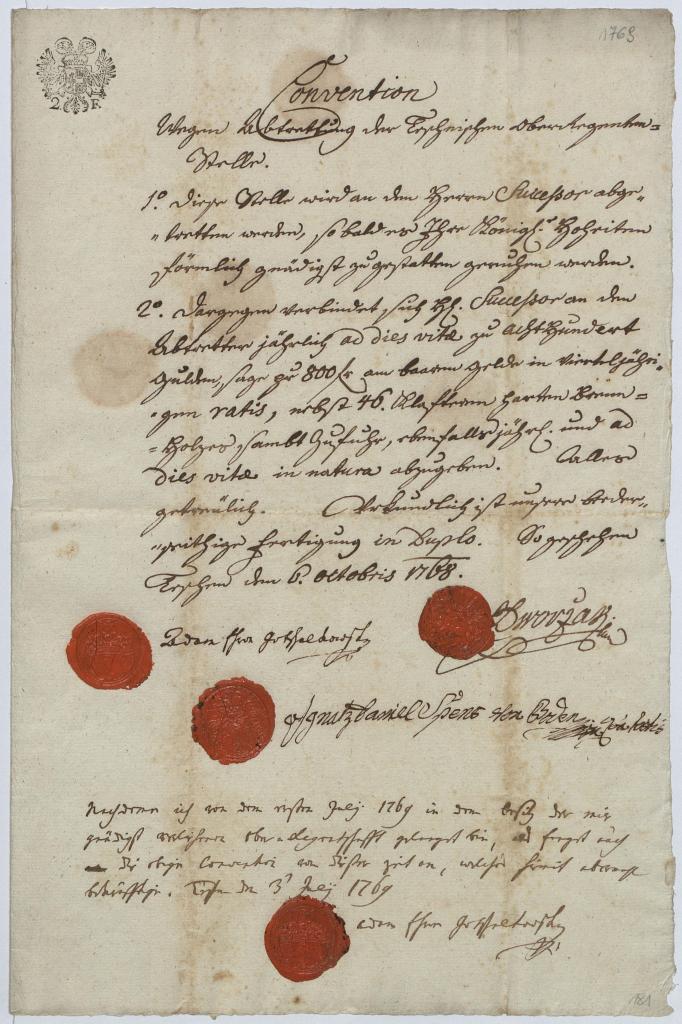 1769
2. F.
Convention
Wegen Abtrettung der Teschnischen Oberregenten=
Stelle.
1º. Diese Stelle wird an den Herrn Successor abge-
-tretten werden, so bald es Ihre Königl. Hoheiten
förmlich gnädigst zugestatten geruhen werden.
2º. Dargegen verbindet sich H. Successor an den
Abtretter jährlich ad dies vitæ zu Acht Hundert
Gulden, sage pr 800 fr am baaren Gelde in Vierteljähri-
-gen ratis, nebst 46. Klaftern harten Brenn=
=Holzes, sambt Zufuhr, ebenfalls jährl. und ad
dies vitæ in natura abzugeben. Alles
getreulich. Urkundlich ist unsere beeder-
-seithige Fertigung in Duplo. So geschehen
Teschen den 6. octobris 1768.
Adam
Dworzak
Ignatz Daniel Spens von
Nachdeme ich von dem ersten July 1769 in den besitz der mir
gnädigst verlihenen ober-Regentschafft gelanget bin, fanget auch
die obige Convention von dieser Zeit an, welches hiemit
bekräfftige. Teschen den 3 July 1769
Adam
181